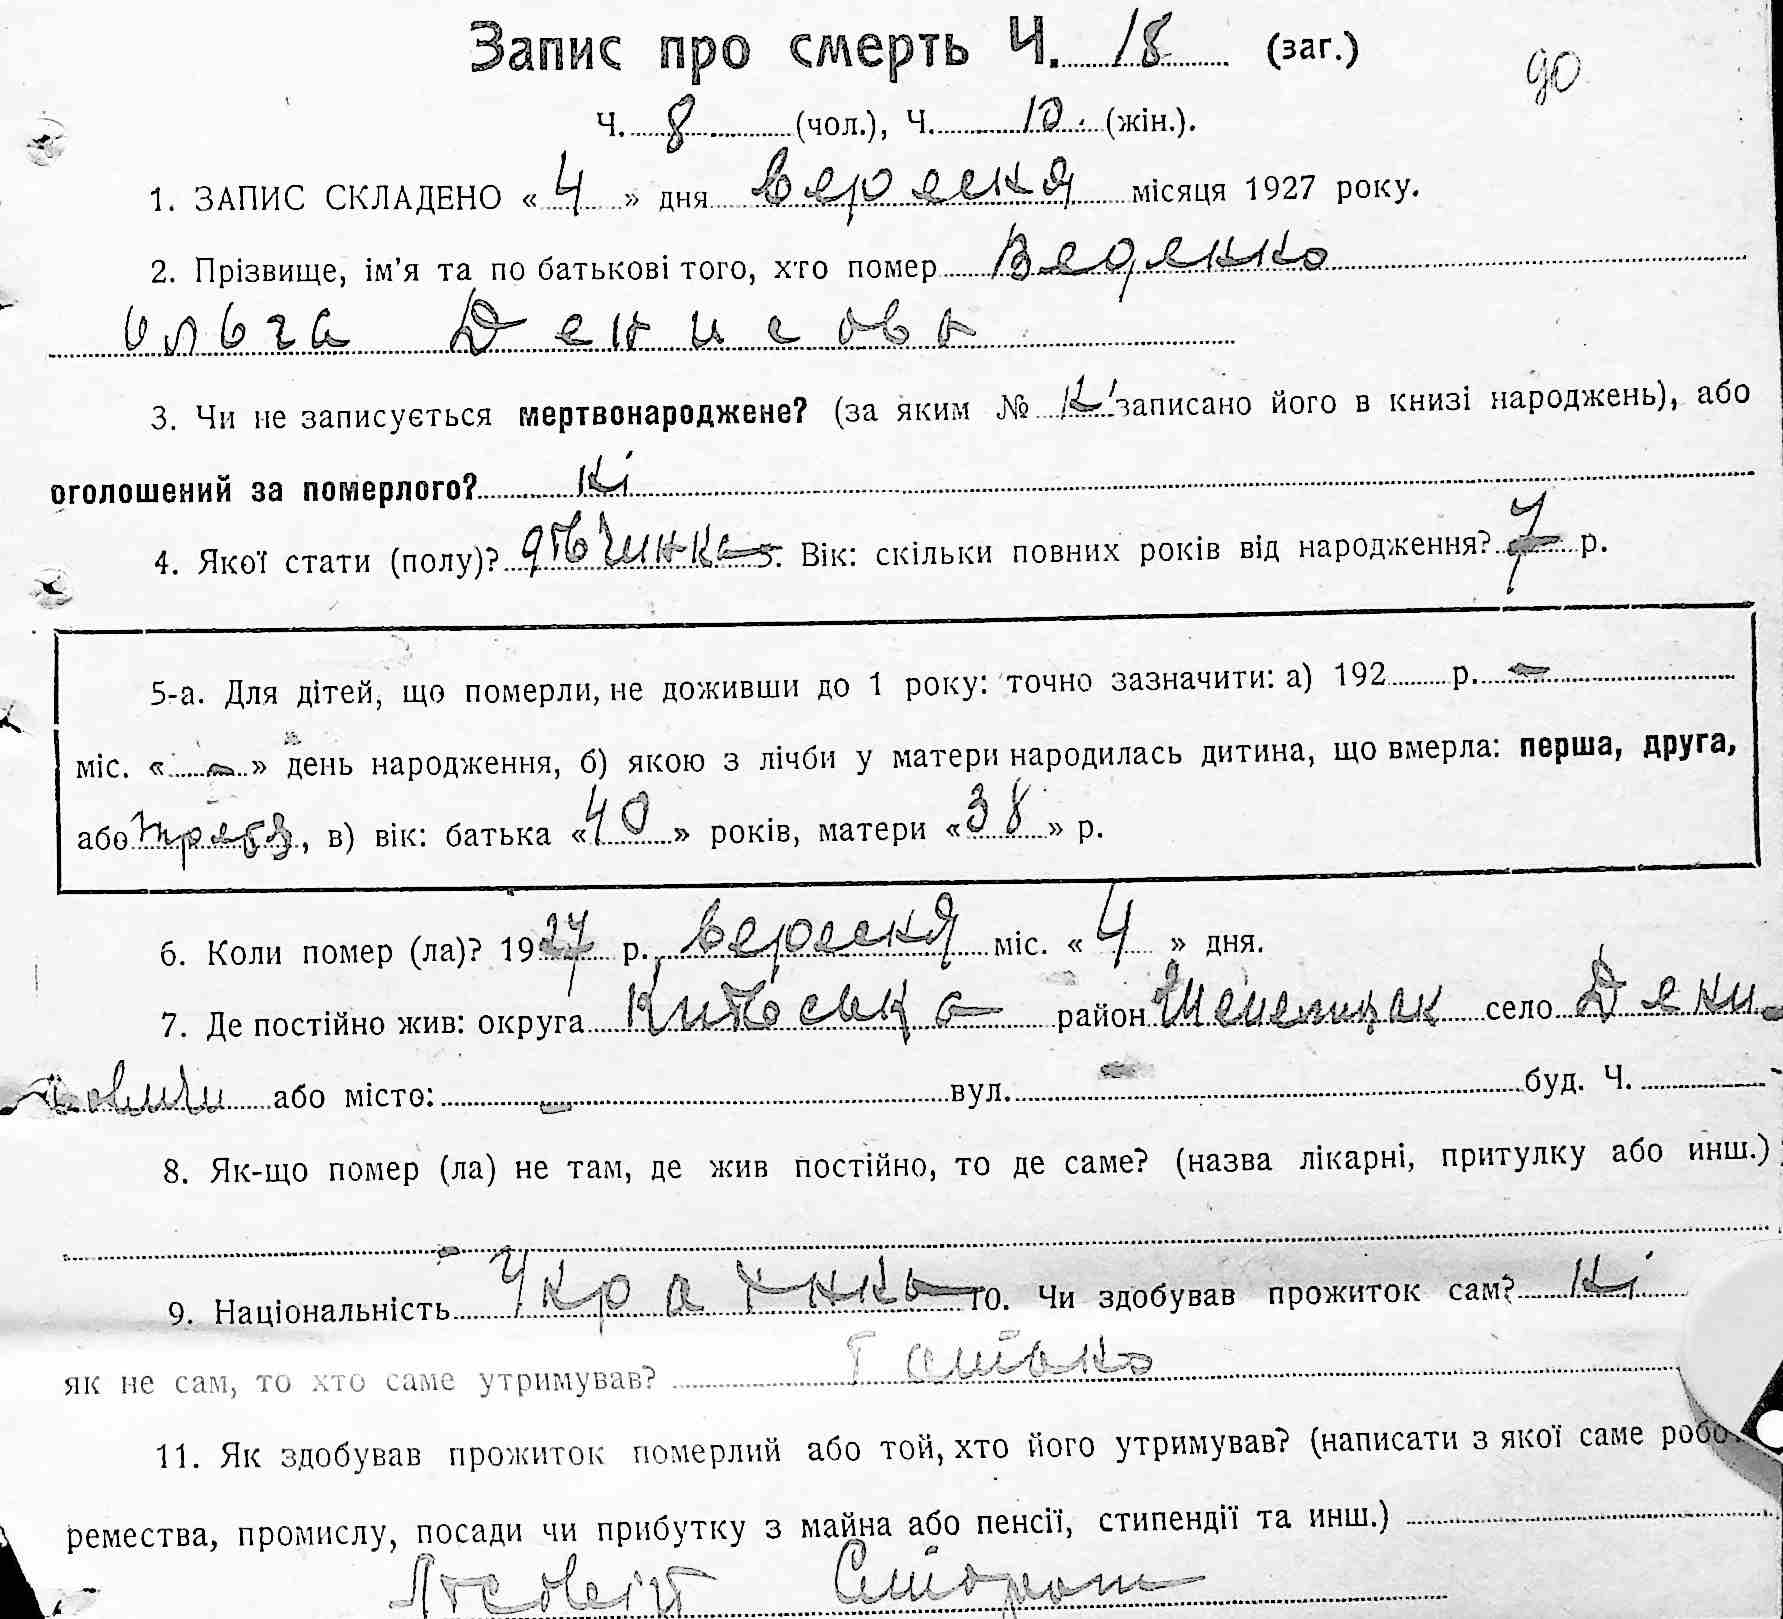 Запис про смерть Ч. 18 (заг.)
90
Ч. 8 (чол.), Ч. 10 (жін.).
1. ЗАПИС СКЛАДЕНО « 4 » дня вересня місяця 1927 року.
2. Прізвище, ім'я та по батькові того, хто помер Веденко
Ольга Денисова
3. Чи не записується мертвонароджене? (за яким № ні записано його в книзі народжень), або
оголошений за померлого? ні
4. Якої стати (полу)? дівчинка 5. Вік: скільки повних років від народження? 7 р.
5-а. Для дітей, що померли, не доживши до 1 року: точно зазначити: а) 192 р. -
міс. « - » день народження, б) якою з лічби у матери народилась дитина, що вмерла: перша, друга,
або третя, в) вік: батька « 40 » років, матери « 38 » р.
6. Коли помер (ла)? 1927 р. вересня міс. « 4 » дня.
7. Де постійно жив: округа район село Дени-
совичи або місто: - вул. - буд. Ч. -
8. Як-що помер (ла) не там, де жив постійно, то де саме? (назва лікарні, притулку або инш.)
-
9. Національність 10. Чи здобував прожиток сам? ні
як не сам, то хто саме утримував?
11. Як здобував прожиток померлий або той, хто його утримував? (написати з якої саме робо
ремества, промислу, посади чи прибутку з майна або пенсії, стипендії та инш.)